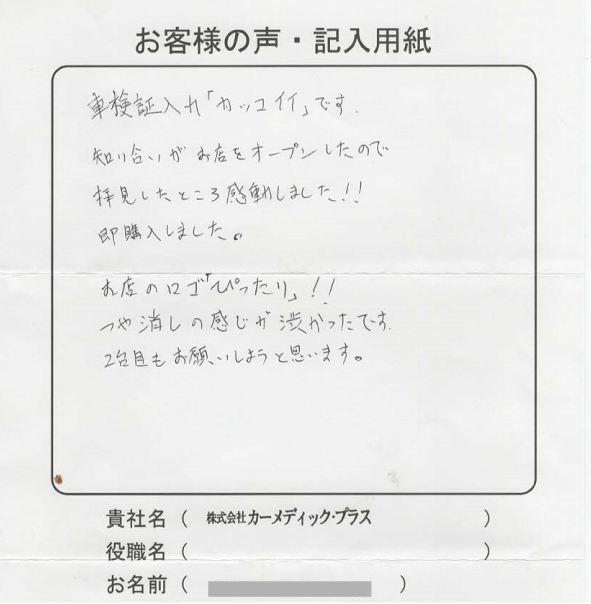 お客様の声・記入用紙
車検証入れ「カッコイイ」です.
知り合いが お店をオープンしたので
拝見したところ感動しました!!
即購入しました。
お店のロゴ「ぴったり」!!
つや消しの感じが渋かったです.
2台目もお願いしようと思います。
貴社名( 株式会社カーメディック・プラス )
役職名( )
お名前( )